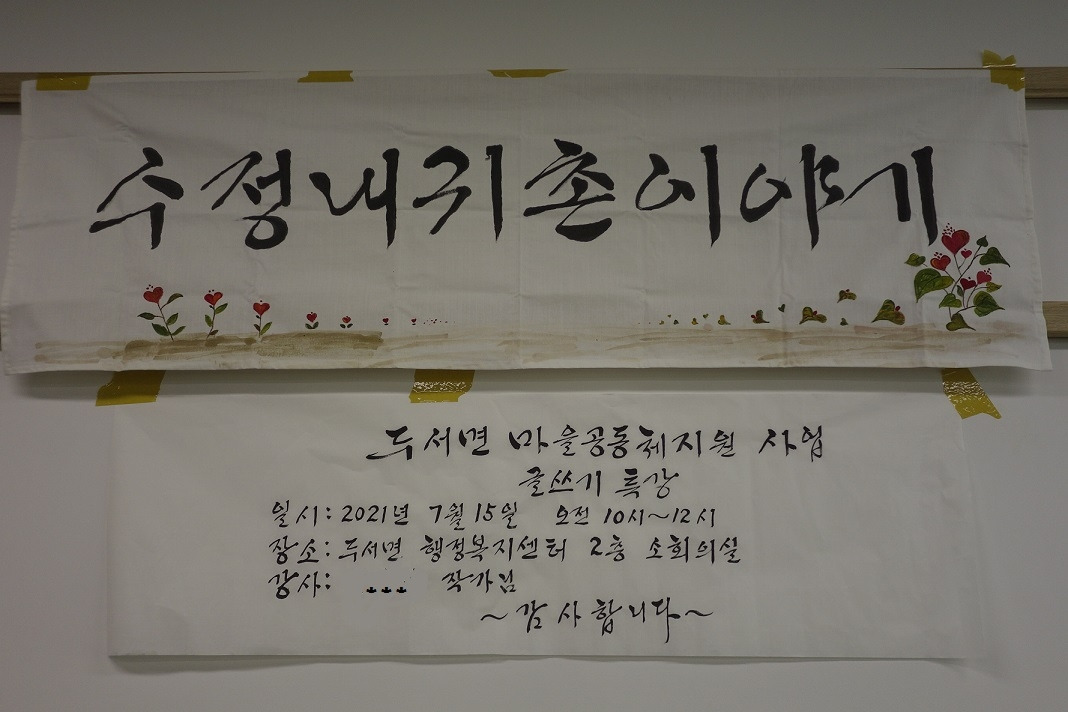 수정내귀촌이야게
두서면 마을공동체지원 사업
글쓰기 특강
일시: 2021년 7월 15일 오전 10시~12시
장소: 두서면 행정복지센터 2층 소회의실
강사: *** 작가님
~감사합니다~